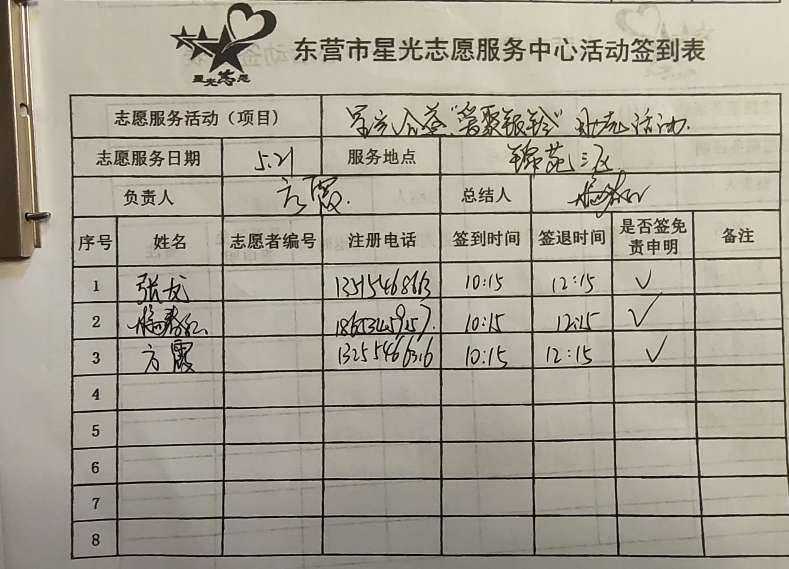 星光志愿
东营市星光志愿服务中心活动签到表
志愿服务活动（项目） 星光公益"爱聚银龄"助老活动.
志愿服务日期 5.21 服务地点 锦苑三区
负责人 方霞 总结人
序号 姓名 志愿者编号 注册电话 签到时间 签退时间 是否签免责申明 备注
1 张龙 10:15 12:15 ✓
2 10:15 12:15 ✓
3 方霞 13255466316 10:15 12:15 ✓
4
5
6
7
8